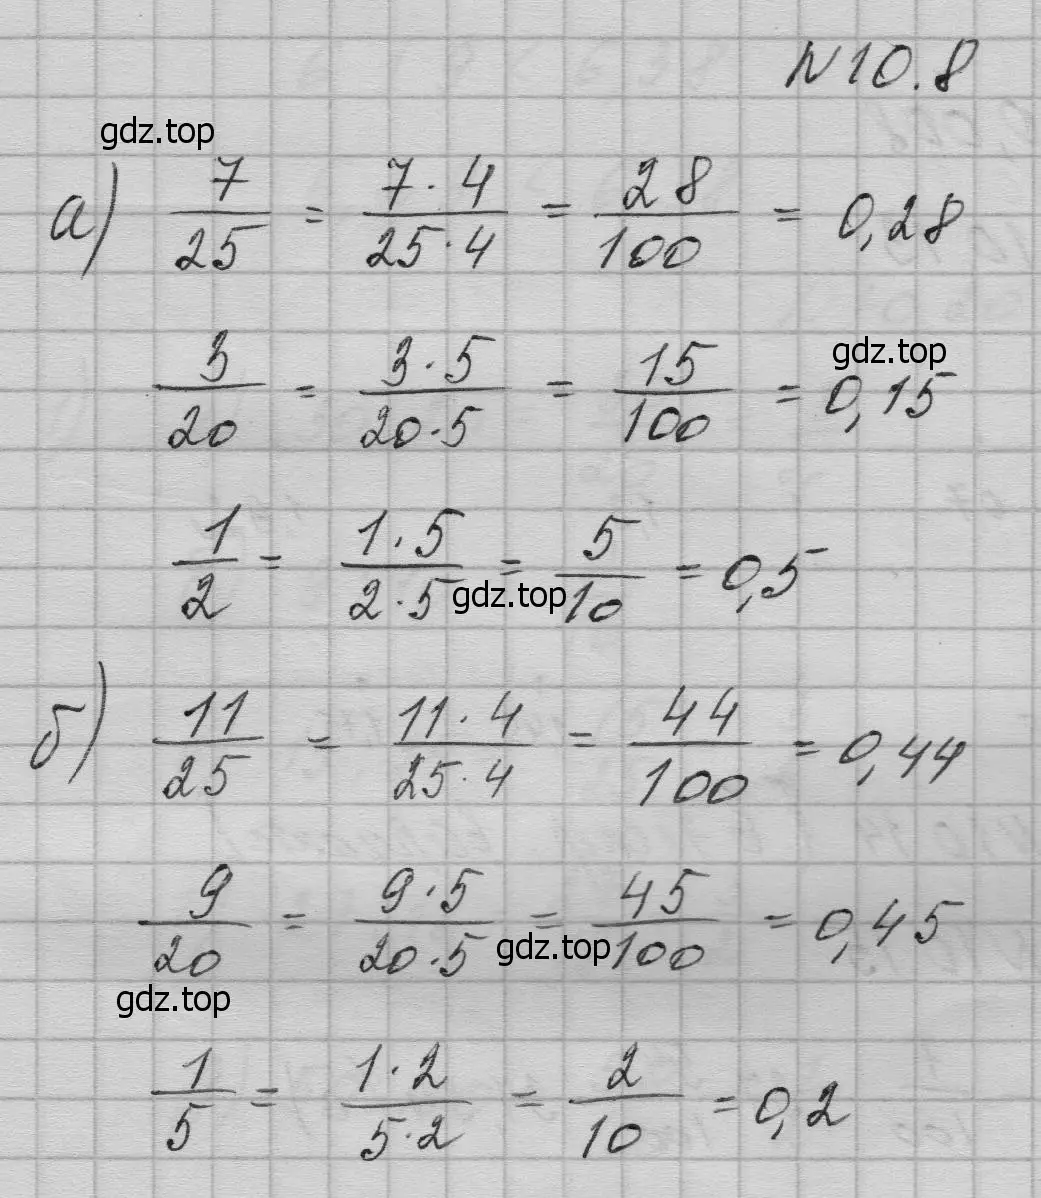 №10.8
gdz.top
а) 7/25 = 7·4/25·4 = 28/100 = 0,28
gdz.top
3/20 = 3·5/20·5 = 15/100 = 0,15
1/2 = 1·5/2·5 = 5/10 = 0,5
gdz.top
б) 11/25 = 11·4/25·4 = 44/100 = 0,44
9/20 = 9·5/20·5 = 45/100 = 0,45
gdz.top
gdz.top
1/5 = 1·2/5·2 = 2/10 = 0,2